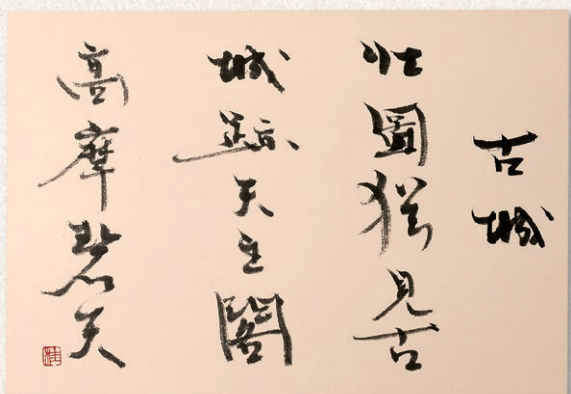 古城
壮圖猶見古
城跡天主閣
高摩碧天